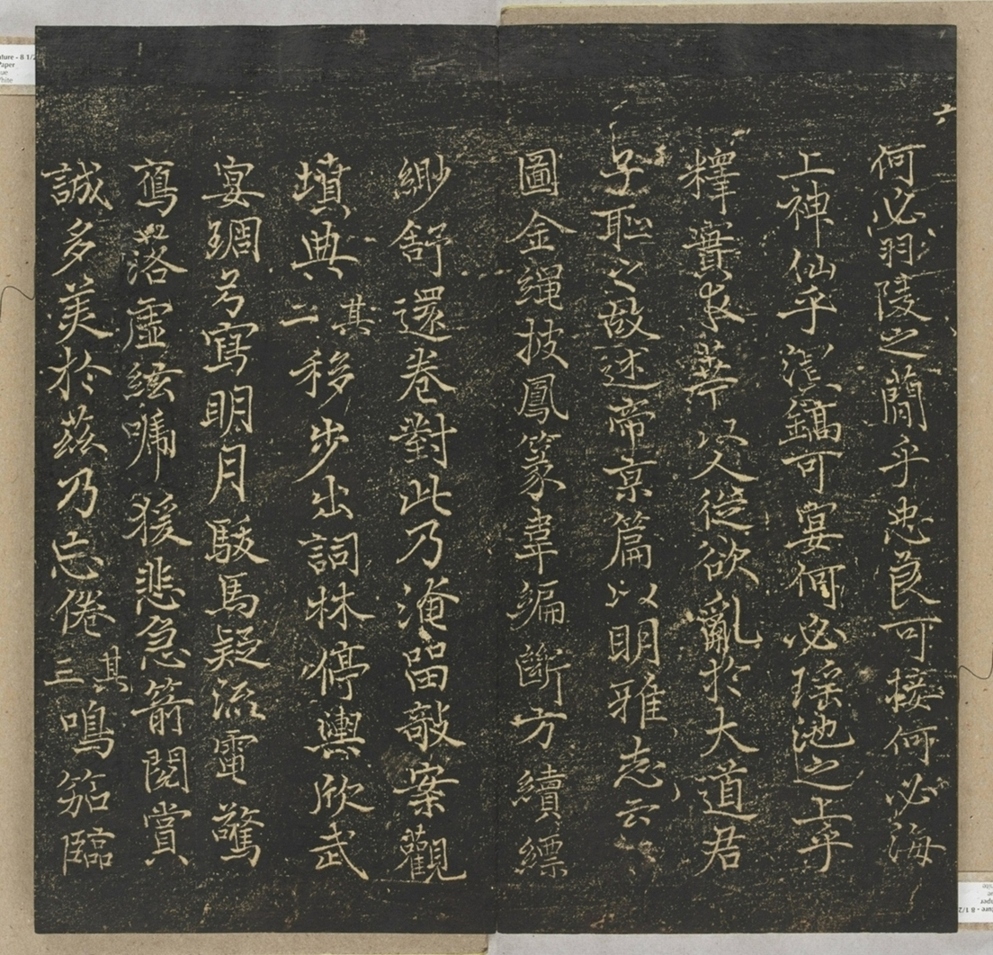 六
何必羽陵之蕳乎忠良可接何必海
上神仙乎灃鎬可宴何必瑤池之上乎
釋實求華以人從欲亂於大道君
子恥之故述帝亰篇以明雅志云
圖金繩披鳳篆韋編斷方續縹
緲舒還卷對此乃淹留敧案觀
墳典其二移步出詞林停輿欣武
宴琱弓寫明月駿馬疑流電驚
鴈落虛絃啼猨悲急箭閱賞
誠多美於茲乃忘倦其三鳴笳臨